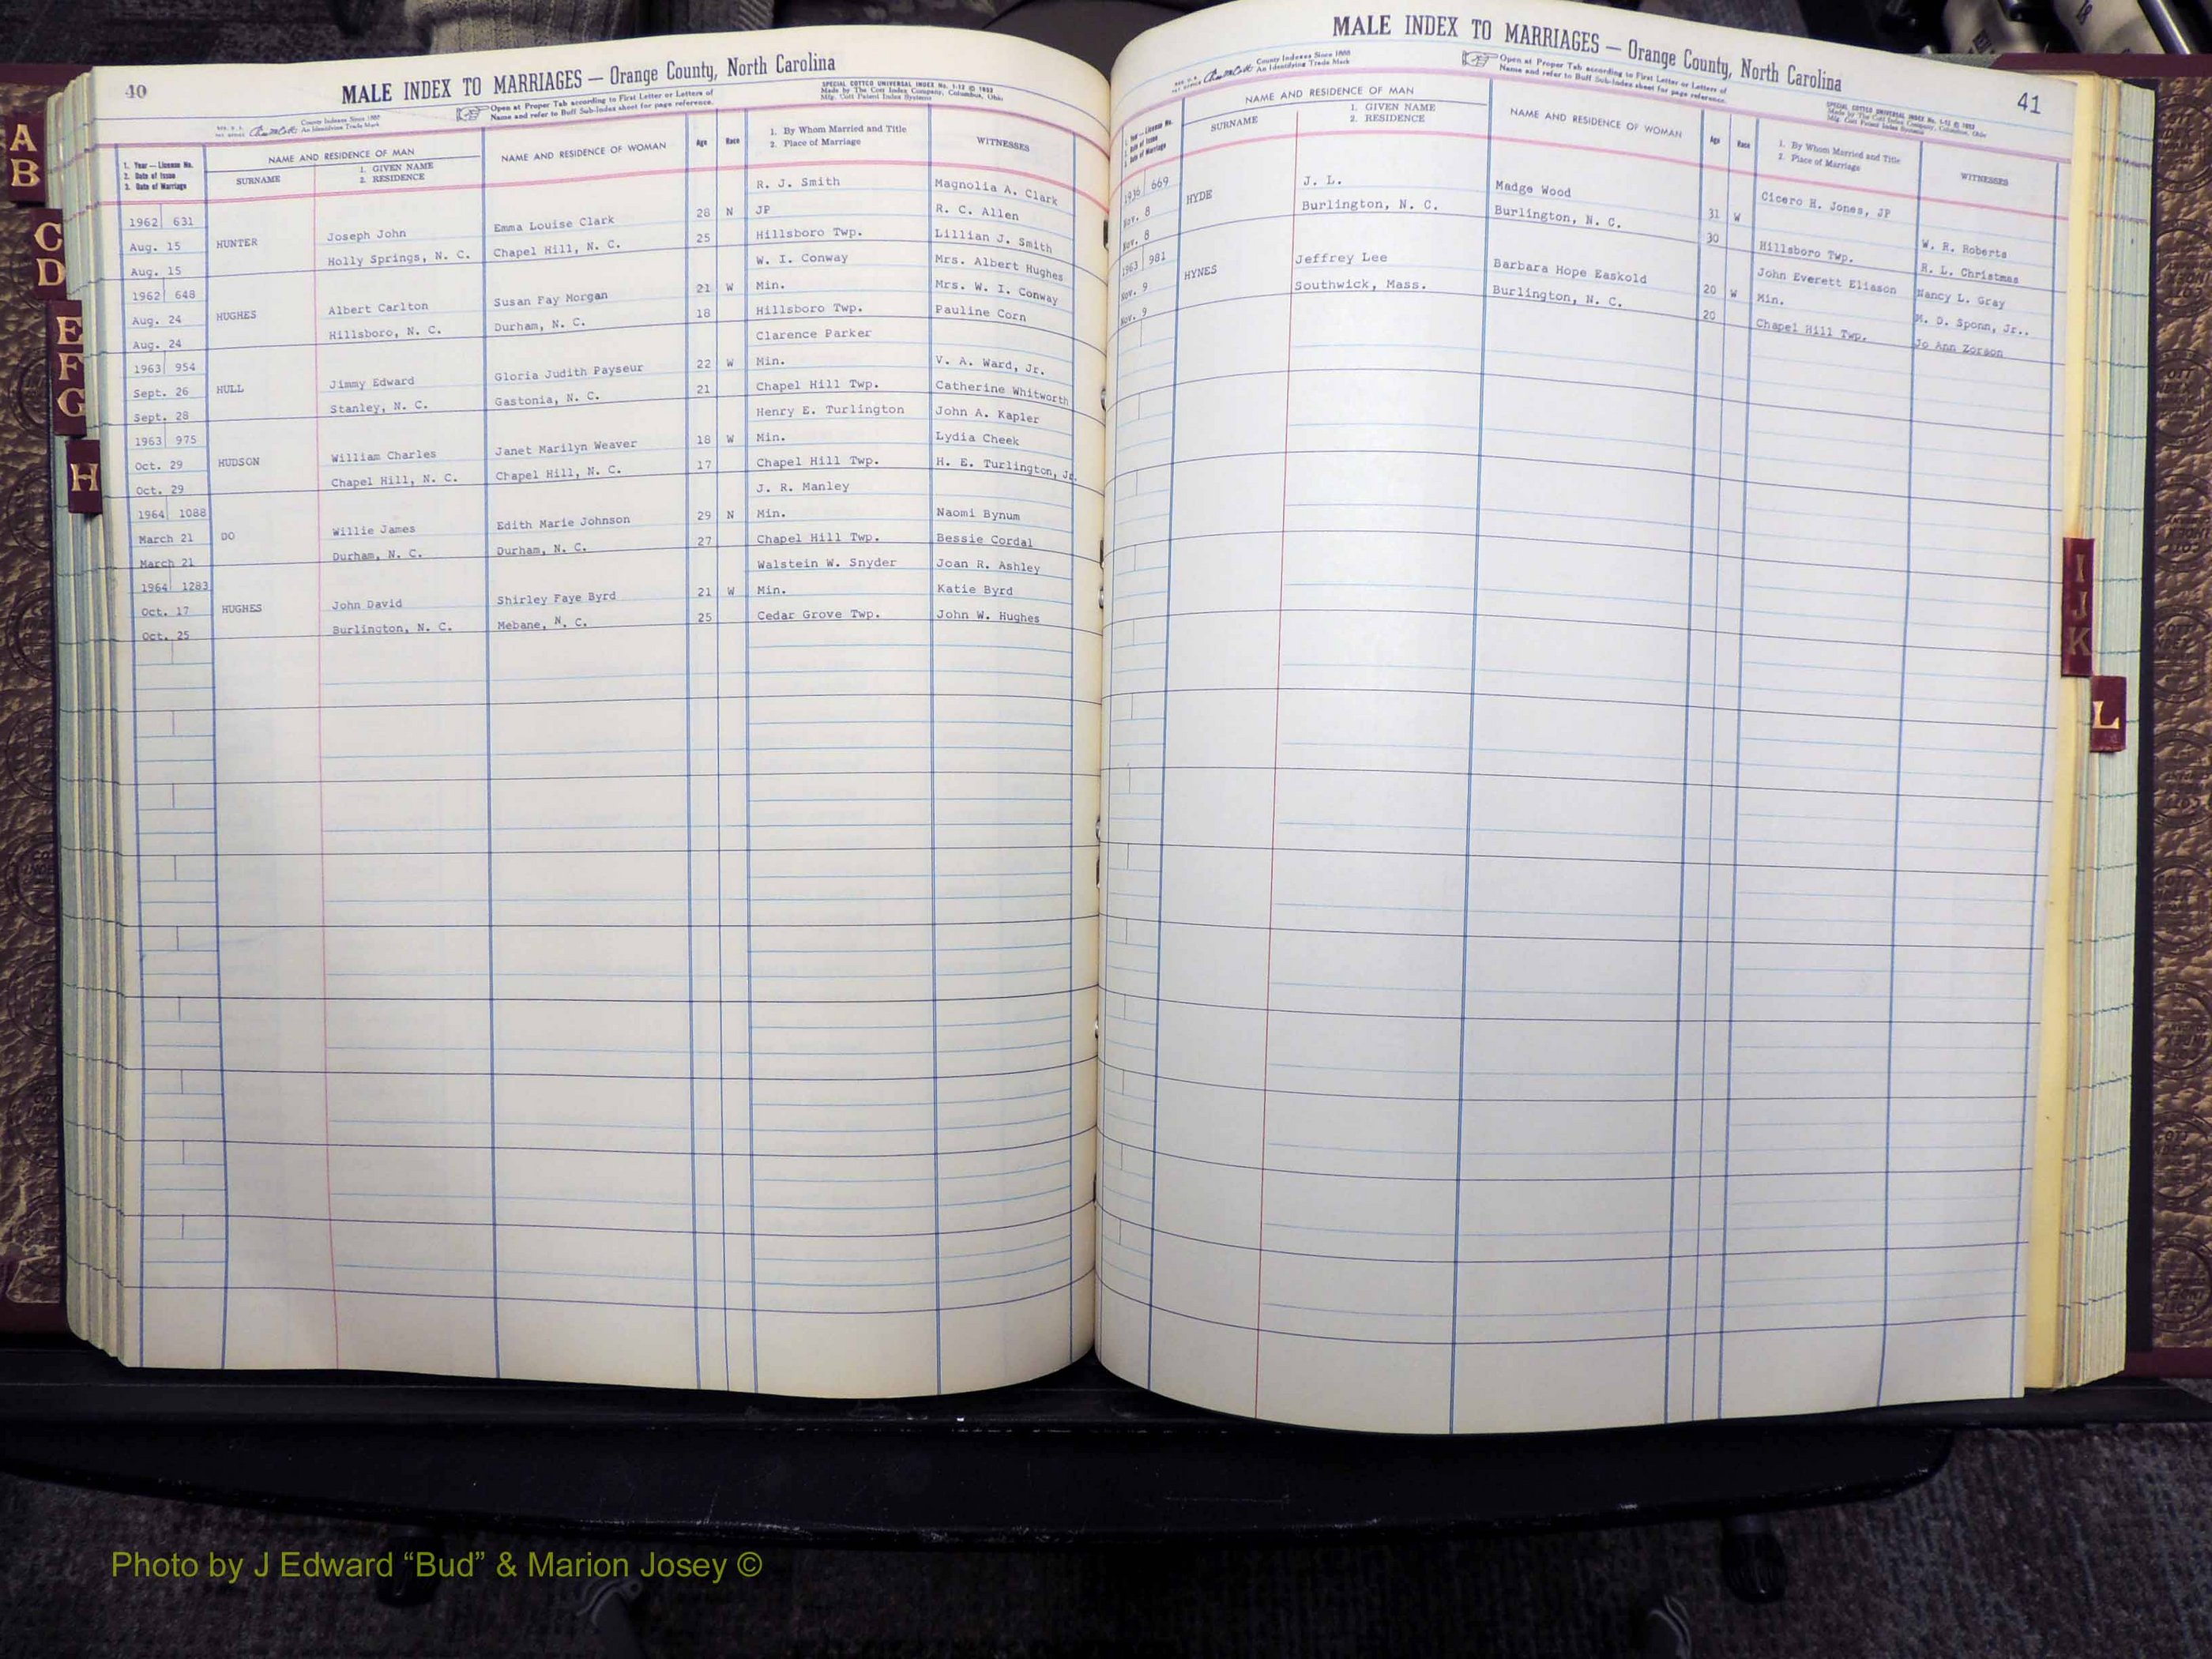 40
MALE INDEX TO MARRIAGES — Orange County, North Carolina
County Indexes Since 1888
An Identifying Trade Mark
Open at Proper Tab according to First Letter or Letters of
Name and refer to Buff Sub-Index sheet for page reference.
SPECIAL COTTCO UNIVERSAL INDEX No. 1-12 © 1953
Made by The Cott Index Company, Columbus, Ohio
Mfg. Cott Patent Index Systems
1. Year — License No.
2. Date of Issue
3. Date of Marriage
NAME AND RESIDENCE OF MAN
SURNAME
1. GIVEN NAME
2. RESIDENCE
NAME AND RESIDENCE OF WOMAN
Age
Race
1. By Whom Married and Title
2. Place of Marriage
WITNESSES
R. J. Smith Magnolia A. Clark
1962 631 Emma Louise Clark 28 N JP R. C. Allen
Aug. 15 HUNTER Joseph John Chapel Hill, N. C. 25 Hillsboro Twp. Lillian J. Smith
Aug. 15 Holly Springs, N. C.
W. I. Conway Mrs. Albert Hughes
1962 648 Susan Fay Morgan 21 W Min. Mrs. W. I. Conway
Aug. 24 HUGHES Albert Carlton Durham, N. C. 18 Hillsboro Twp. Pauline Corn
Aug. 24 Hillsboro, N. C.
Clarence Parker
1963 954 Gloria Judith Payseur 22 W Min. V. A. Ward, Jr.
Sept. 26 HULL Jimmy Edward Gastonia, N. C. 21 Chapel Hill Twp. Catherine Whitworth
Sept. 28 Stanley, N. C.
Henry E. Turlington John A. Kapler
1963 975 Janet Marilyn Weaver 18 W Min. Lydia Cheek
Oct. 29 HUDSON William Charles Chapel Hill, N. C. 17 Chapel Hill Twp. H. E. Turlington, Jr.
Oct. 29 Chapel Hill, N. C.
J. R. Manley
1964 1088 Edith Marie Johnson 29 N Min. Naomi Bynum
March 21 DO Willie James Durham, N. C. 27 Chapel Hill Twp. Bessie Cordal
March 21 Durham, N. C.
Walstein W. Snyder Joan R. Ashley
1964 1283 Shirley Faye Byrd 21 W Min. Katie Byrd
Oct. 17 HUGHES John David Mebane, N. C. 25 Cedar Grove Twp. John W. Hughes
Oct. 25 Burlington, N. C.
MALE INDEX TO MARRIAGES — Orange County, North Carolina
41
County Indexes Since 1888
An Identifying Trade Mark
Open at Proper Tab according to First Letter or Letters of
Name and refer to Buff Sub-Index sheet for page reference.
SPECIAL COTTCO UNIVERSAL INDEX No. 1-12 © 1953
Made by The Cott Index Company, Columbus, Ohio
Mfg. Cott Patent Index Systems
1. Year — License No.
2. Date of Issue
3. Date of Marriage
NAME AND RESIDENCE OF MAN
SURNAME
1. GIVEN NAME
2. RESIDENCE
NAME AND RESIDENCE OF WOMAN
Age
Race
1. By Whom Married and Title
2. Place of Marriage
WITNESSES
1936 669 J. L. Madge Wood Cicero H. Jones, JP
Nov. 8 HYDE Burlington, N. C. Burlington, N. C. 31 W W. R. Roberts
Nov. 8 30 Hillsboro Twp. R. L. Christmas
1963 981 Jeffrey Lee Barbara Hope Easkold John Everett Eliason Nancy L. Gray
Nov. 9 HYNES Southwick, Mass. Burlington, N. C. 20 W Min. M. D. Sponn, Jr..
Nov. 9 20 Chapel Hill Twp. Jo Ann Zorson
A
B
C
D
E
F
G
H
I
J
K
L
Photo by J Edward “Bud” & Marion Josey ©